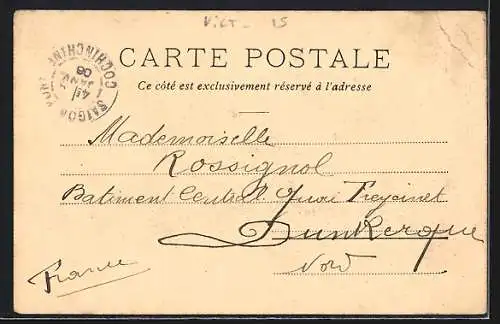 Vict - 15
CARTE POSTALE
Ce côté est exclusivement réservé à l'adresse
COCHINCHINE
SAIGON
Mademoiselle
Rossignol
Batiment Central Quai Freycinet
Dunkerque
Nord
France